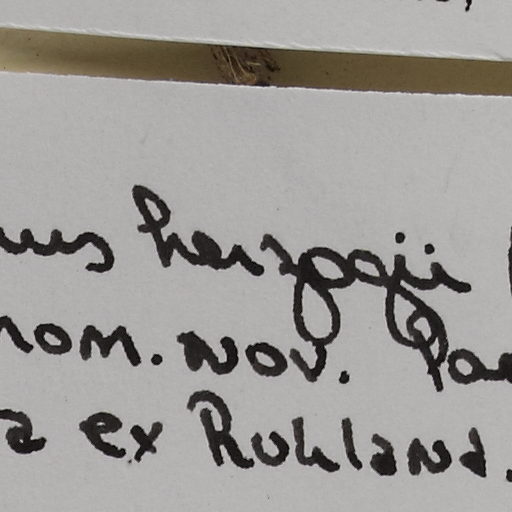 herzogii
nom. nov. Pae
a ex Ruhland.